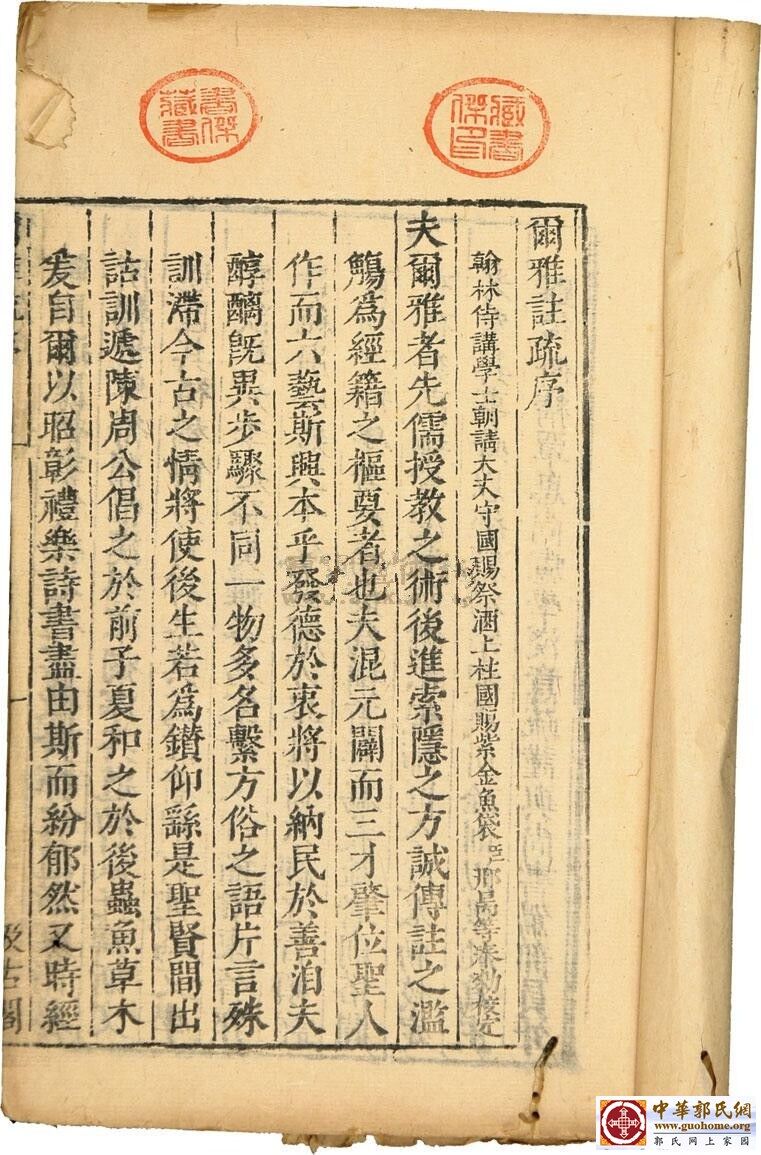 臧書傑印
書傑藏書
爾雅註疏序
翰林侍講學士朝請大夫守國賜祭酒上柱國賜紫金魚袋臣邢昺等奉勑校定
夫爾雅者先儒授教之術後進索隱之方誠傳註之濫
觴爲經籍之樞要者也夫混元闢而三才肇位聖人
作而六藝斯興本乎發德於衷將以納民於善洎夫
醇醨旣異步驟不同一物多名繫方俗之語片言殊
訓滯今古之情將使後生若爲鑽仰繇是聖賢間出
詁訓遞陳周公倡之於前子夏和之於後蟲魚草木
爰自爾以昭彰禮樂詩書盡由斯而紛郁然又時經
汲古閣
中華郭氏網
www.guohome.org
郭氏网上家园